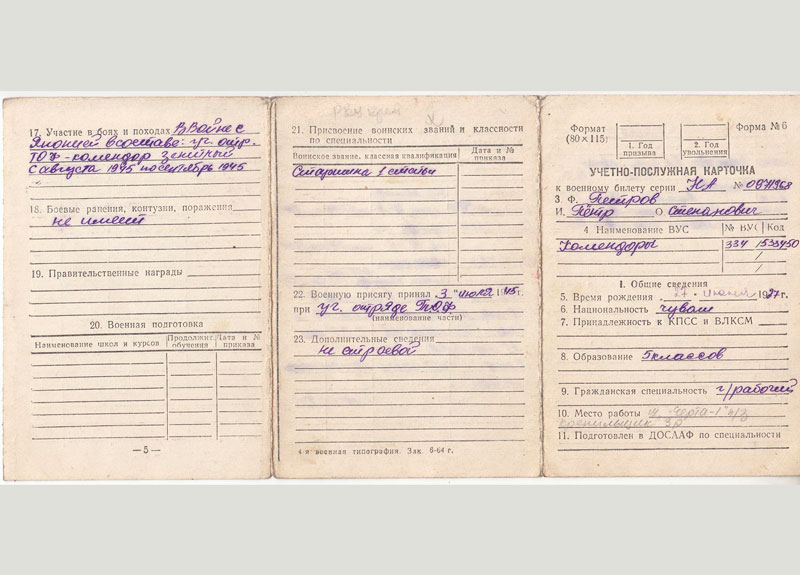 17. Участие в боях и походах В Войне с
Японией в составе: уч. отр.
ТОФ - комендор зенитной
с августа 1945 по сентябрь 1945
18. Боевые ранения, контузии, поражения
не имеет
19. Правительственные награды
20. Военная подготовка
Наименование школ и курсов
Продолжит. обучения
Дата и № приказа
— 5 —
21. Присвоение воинских званий и классности
по специальности
Воинское звание, классная квалификация
Дата и № приказа
Старшина 1 статьи
22. Военную присягу принял „3" июля 1945 г.
при уч. отряде ТОФ
(наименование части)
23. Дополнительные сведения
не строевой
4-я военная типография. Зак. 6-64 г.
Формат
(80×115)
1. Год призыва
2. Год увольнения
Форма № 6
УЧЕТНО-ПОСЛУЖНАЯ КАРТОЧКА
к военному билету серии НА № 0971968
3. Ф. Петров
И. Пётр О Степанович
4 Наименование ВУС
№ ВУС
Код
Комендоры
334
533450
I. Общие сведения
5. Время рождения 27 июня 1927 г.
6. Национальность чуваш
7. Принадлежность к КПСС и ВЛКСМ
8. Образование 5 классов
9. Гражданская специальность г/рабочий
10. Место работы
крепильщик 3 р
11. Подготовлен в ДОСААФ по специальности